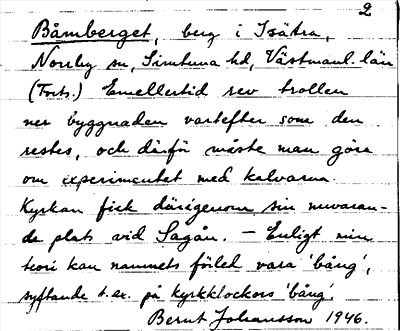 2
Båmberget, berg i Isätra,
Norrby sn, Simtuna hd, Västmanl. län
(Forts.) Emellertid rev trollen
ner byggnaden vartefter som den
restes, och därför måste man göra
om experimentet med kalvarna.
Kyrkan fick därigenom sin nuvaran-
de plats vid Sagån. – Enligt min
teori kan namnets förled vara 'bång',
syftande t. ex. på kyrkklockors 'bång'.
Bernt Johansson 1946.